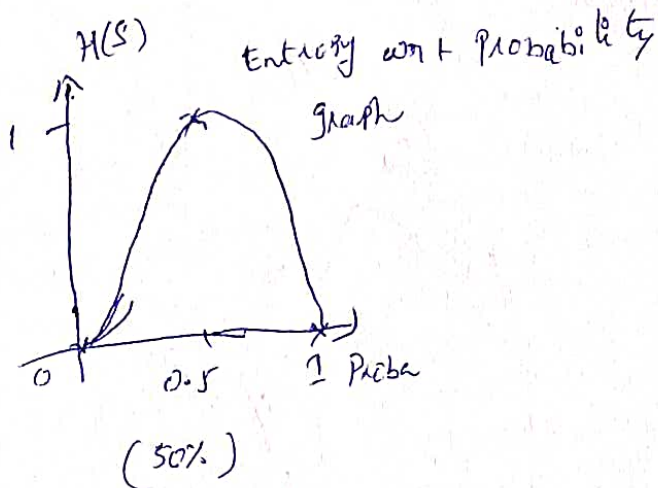 H(S)
Entropy wrt Probability
graph
1
0 0.5 1 Proba
(50%)